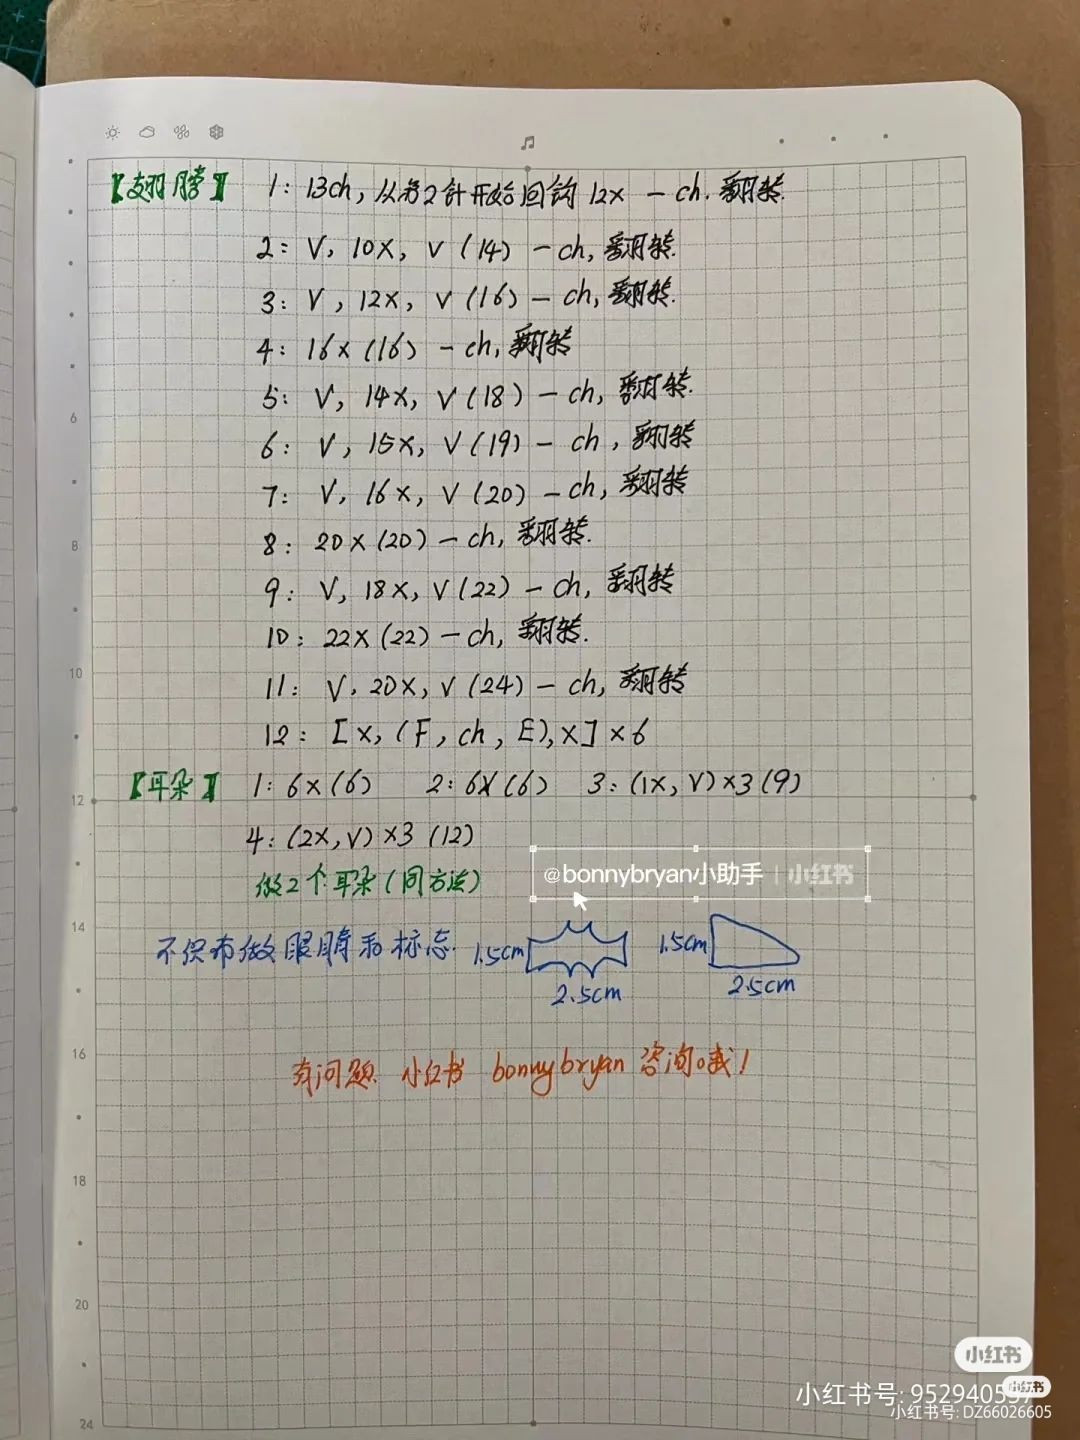 【翅膀】 1: 13ch, 从第2针开始回钩 12x - ch. 翻转.
2: V, 10X, V (14) - ch, 翻转.
3: V, 12X, V (16) - ch, 翻转.
4: 16X (16) - ch, 翻转
5: V, 14X, V (18) - ch, 翻转.
6: V, 15X, V (19) - ch, 翻转
7: V, 16X, V (20) - ch, 翻转
8: 20X (20) - ch, 翻转.
9: V, 18X, V (22) - ch, 翻转
10: 22X (22) - ch, 翻转.
11: V, 20X, V (24) - ch, 翻转
12: [X, (F, ch, E), X] × 6
【耳朵】 1: 6X (6) 2: 6X (6) 3: (1X, V) × 3 (9)
4: (2X, V) × 3 (12)
做2个耳朵 (同方法)
@bonnybryan小助手 | 小红书
不织布做眼睛和标志. 1.5cm 1.5cm
2.5cm 2.5cm
有问题 小红书 bonnybryan 咨询哦!
6
8
10
12
14
16
18
20
24
小红书
小红书号: 952940557
小红书
小红书号: DZ66026605